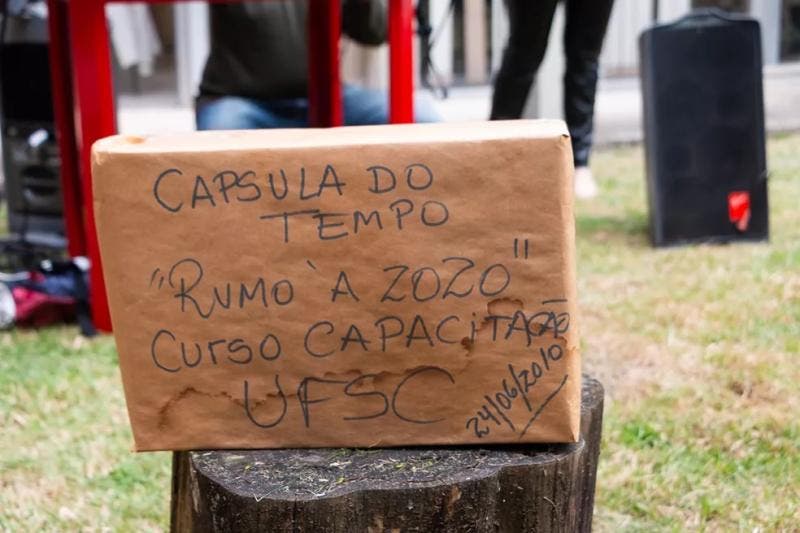 CAPSULA DO
TEMPO
"RUMO `A 2020"
CURSO CAPACiTAÇÃO
UFSC
24/06/2010